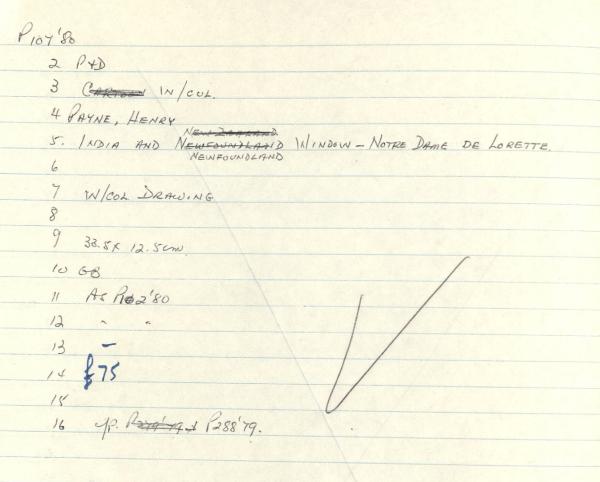 P107'80
2 P+D
3 CARTOON IN/COL.
4 PAYNE, HENRY
NEW ZEALAND
5. INDIA AND NEWFOUNDLAND WINDOW – NOTRE DAME DE LORETTE.
NEWFOUNDLAND
6
7 W/COL DRAWING
8
9 33.5 x 12.5cm
10 GB
11 As P102'80
12 " "
13 –
14 £75
15
16 cp. P279'79 + P288'79.